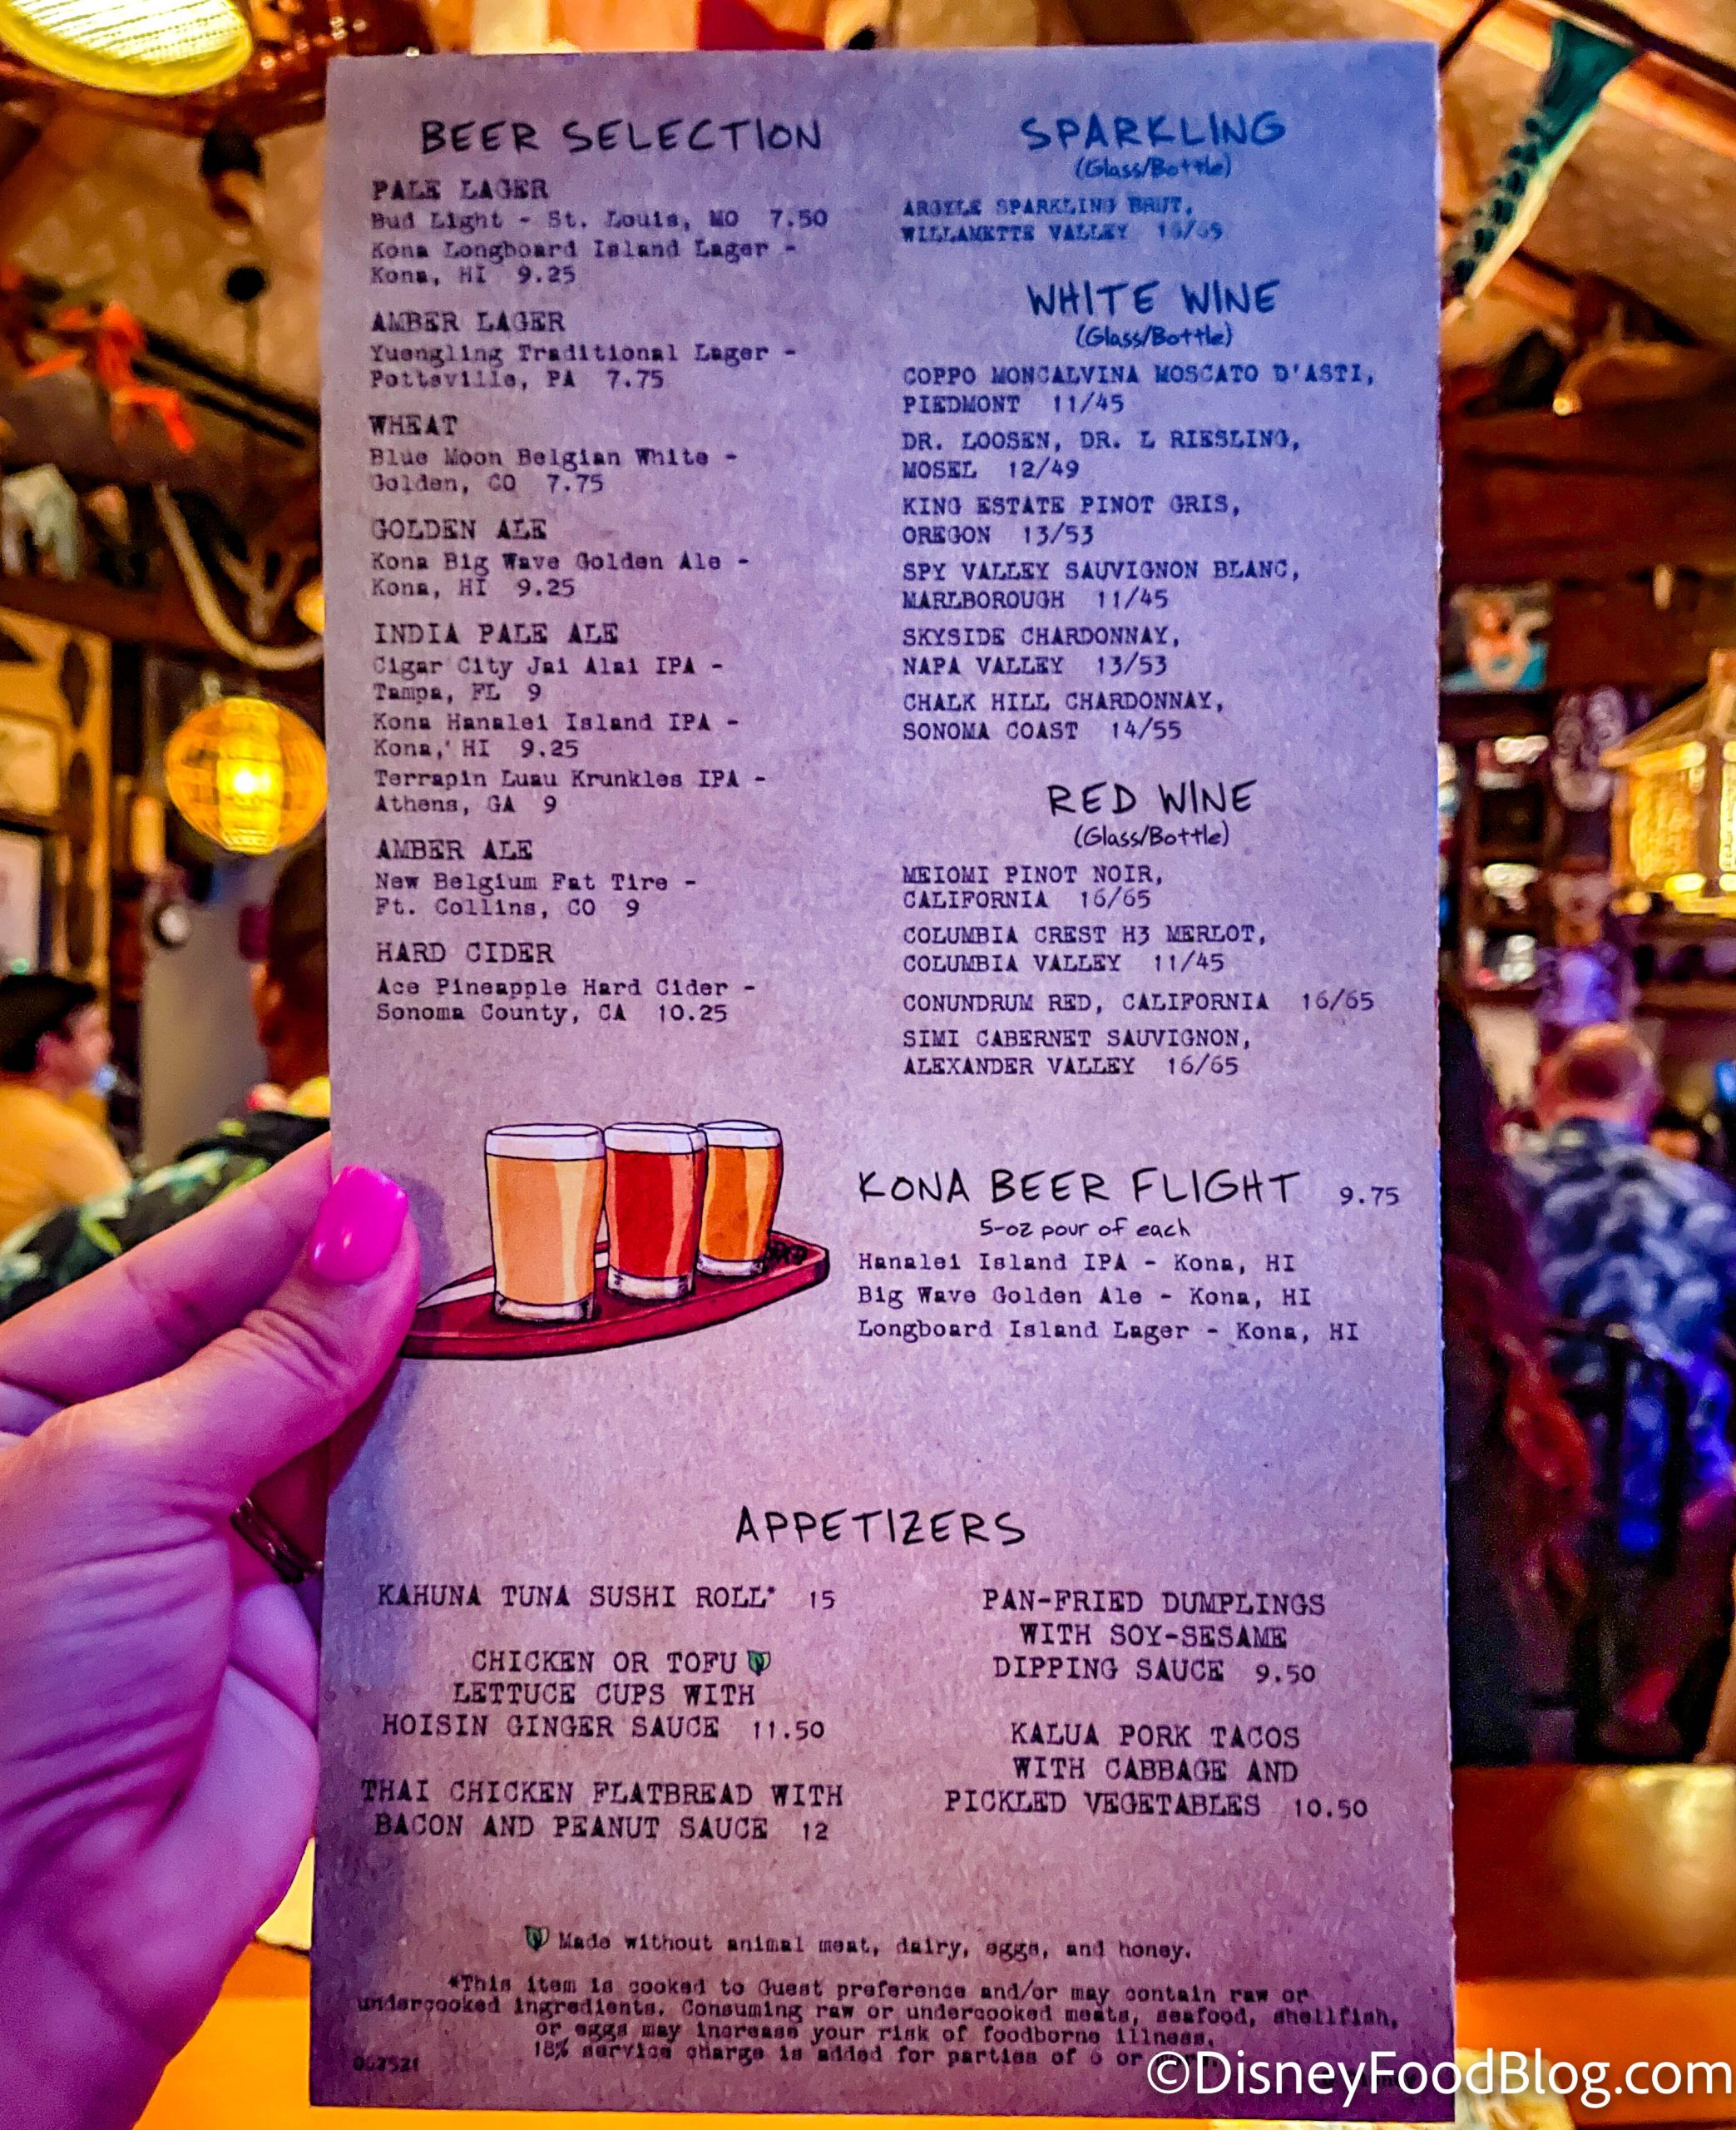 BEER SELECTION
PALE LAGER
Bud Light - St. Louis, MO 7.50
Kona Longboard Island Lager -
Kona, HI 9.25
AMBER LAGER
Yuengling Traditional Lager -
Pottsville, PA 7.75
WHEAT
Blue Moon Belgian White -
Golden, CO 7.75
GOLDEN ALE
Kona Big Wave Golden Ale -
Kona, HI 9.25
INDIA PALE ALE
Cigar City Jai Alai IPA -
Tampa, FL 9
Kona Hanalei Island IPA -
Kona, HI 9.25
Terrapin Luau Krunkles IPA -
Athens, GA 9
AMBER ALE
New Belgium Fat Tire -
Ft. Collins, CO 9
HARD CIDER
Ace Pineapple Hard Cider -
Sonoma County, CA 10.25
SPARKLING
(Glass/Bottle)
ARGYLE SPARKLING BRUT,
WILLAMETTE VALLEY
WHITE WINE
(Glass/Bottle)
COPPO MONCALVINA MOSCATO D'ASTI,
PIEDMONT 11/45
DR. LOOSEN, DR. L RIESLING,
MOSEL 12/49
KING ESTATE PINOT GRIS,
OREGON 13/53
SPY VALLEY SAUVIGNON BLANC,
MARLBOROUGH 11/45
SKYSIDE CHARDONNAY,
NAPA VALLEY 13/53
CHALK HILL CHARDONNAY,
SONOMA COAST 14/55
RED WINE
(Glass/Bottle)
MEIOMI PINOT NOIR,
CALIFORNIA 16/65
COLUMBIA CREST H3 MERLOT,
COLUMBIA VALLEY 11/45
CONUNDRUM RED, CALIFORNIA 16/65
SIMI CABERNET SAUVIGNON,
ALEXANDER VALLEY 16/65
KONA BEER FLIGHT 9.75
5-oz pour of each
Hanalei Island IPA - Kona, HI
Big Wave Golden Ale - Kona, HI
Longboard Island Lager - Kona, HI
APPETIZERS
KAHUNA TUNA SUSHI ROLL* 15
CHICKEN OR TOFU
LETTUCE CUPS WITH
HOISIN GINGER SAUCE 11.50
THAI CHICKEN FLATBREAD WITH
BACON AND PEANUT SAUCE 12
PAN-FRIED DUMPLINGS
WITH SOY-SESAME
DIPPING SAUCE 9.50
KALUA PORK TACOS
WITH CABBAGE AND
PICKLED VEGETABLES 10.50
Made without animal meat, dairy, eggs, and honey.
*This item is cooked to Guest preference and/or may contain raw or
undercooked ingredients. Consuming raw or undercooked meats, seafood, shellfish,
or eggs may increase your risk of foodborne illness.
18% service charge is added for parties of 6 or
©DisneyFoodBlog.com